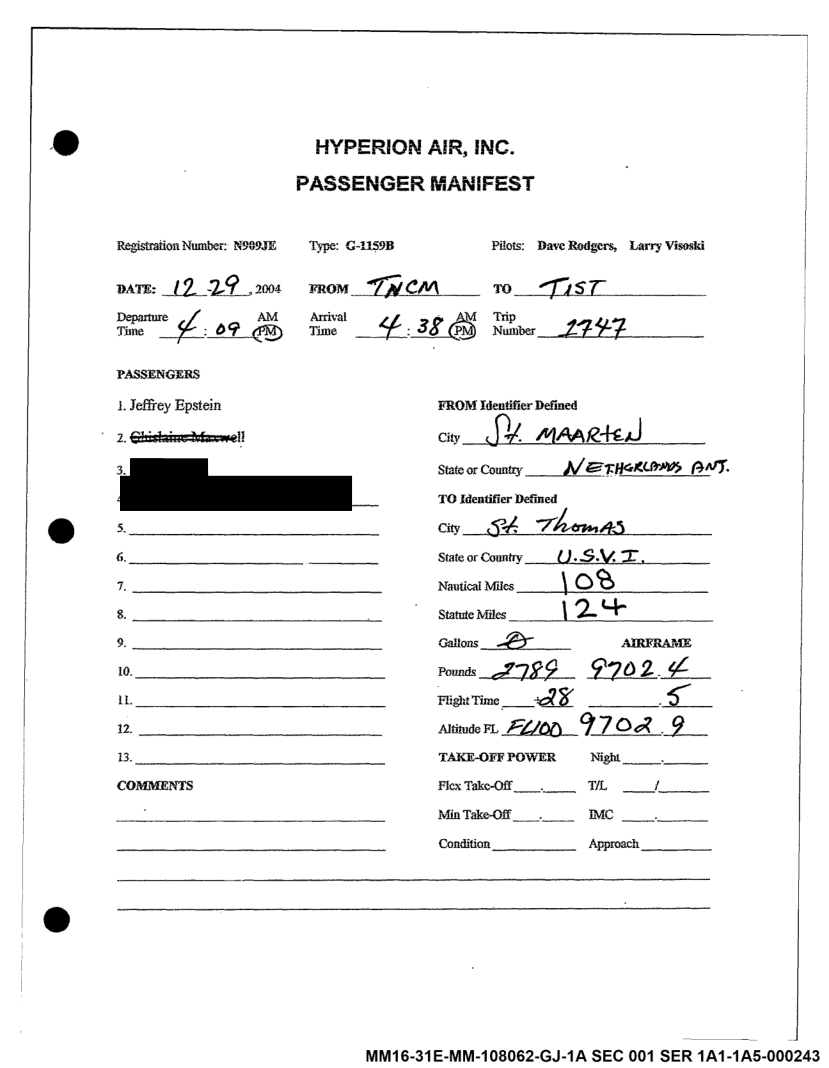 HYPERION AIR, INC.
PASSENGER MANIFEST
Registration Number: N909JE Type: G-1159B Pilots: Dave Rodgers, Larry Visoski
DATE: 12-29, 2004 FROM TNCM TO TIST
Departure Time 4:09 AM PM Arrival Time 4:38 AM PM Trip Number 2747
PASSENGERS
1. Jeffrey Epstein FROM Identifier Defined
2. Ghislaine Maxwell City St. MAARTEN
3. State or Country NETHERLANDS ANT.
4 TO Identifier Defined
5. City St. Thomas
6. State or Country U.S.V.I.
7. Nautical Miles 108
8. Statute Miles 124
9. Gallons 0 AIRFRAME
10. Pounds 2789 9702.4
11. Flight Time +28 .5
12. Altitude FL FL100 9702.9
13. TAKE-OFF POWER Night
COMMENTS Flex Take-Off T/L /
Min Take-Off IMC
Condition Approach
MM16-31E-MM-108062-GJ-1A SEC 001 SER 1A1-1A5-000243